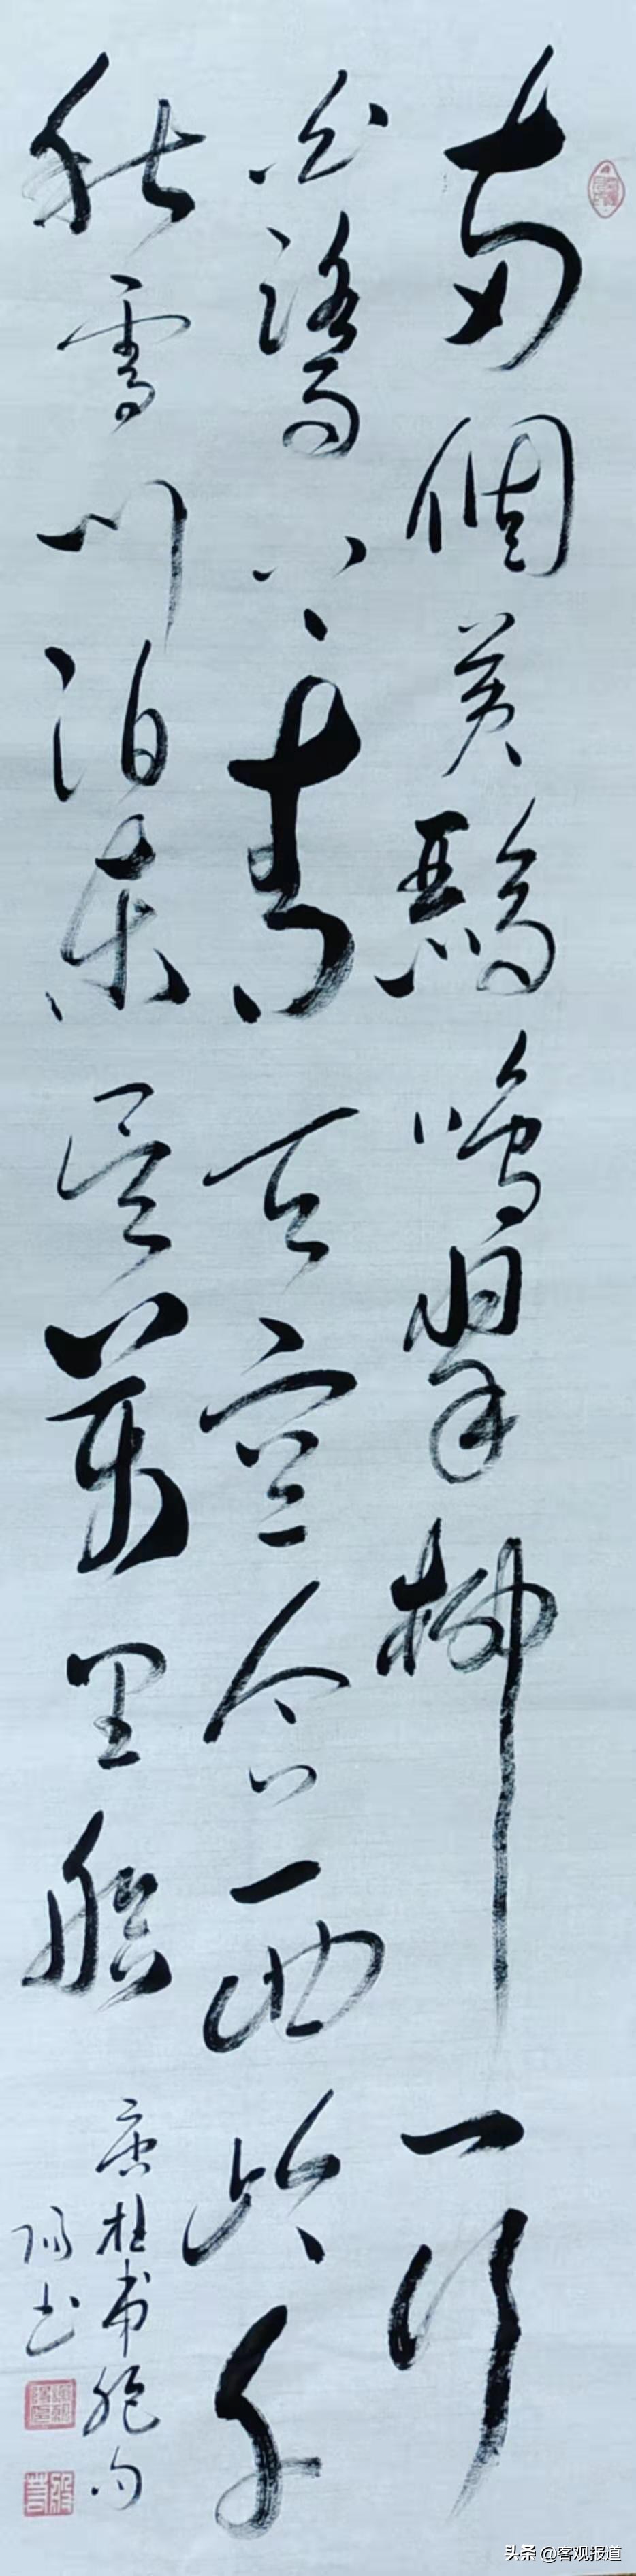 两個黄鸝鳴翠柳一行
白鷺上青天窗含西岭千
秋雪门泊東吴萬里船
唐杜甫絶句
陽书
头条 @客观报道